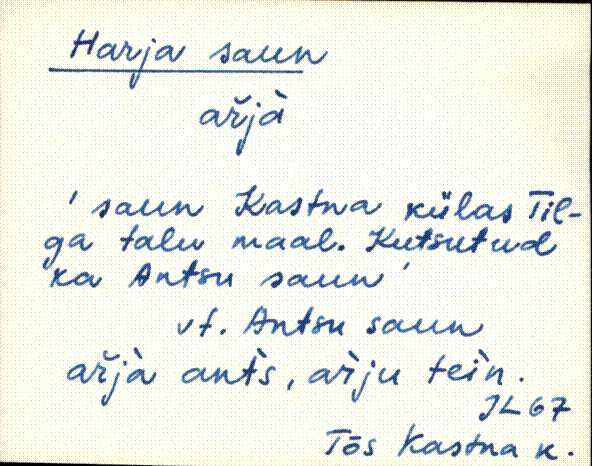 Harja saun
ar̆jà
' saun Kastna külas Til-
ga talu maal. Kutsutud
ka Antsu saun '
vt. Antsu saun
ar̆jà ants, arju tein.
JL 67
Tõs Kastna k.